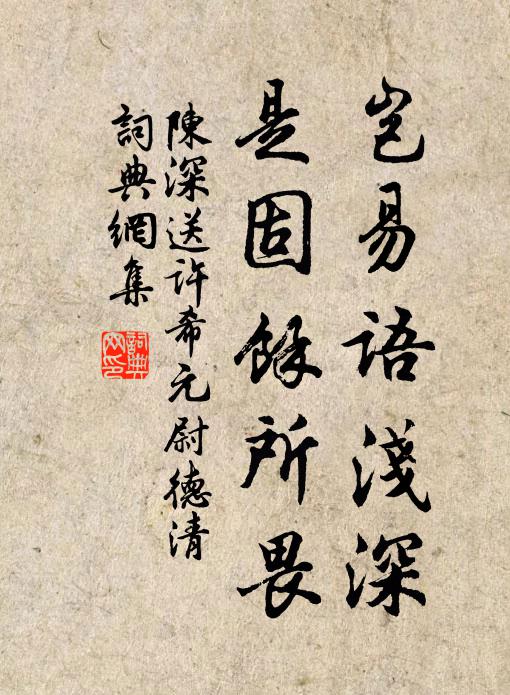 豈易語淺深
是固餘所畏
陳深送許希元尉德清
詞典網集
詞典網印